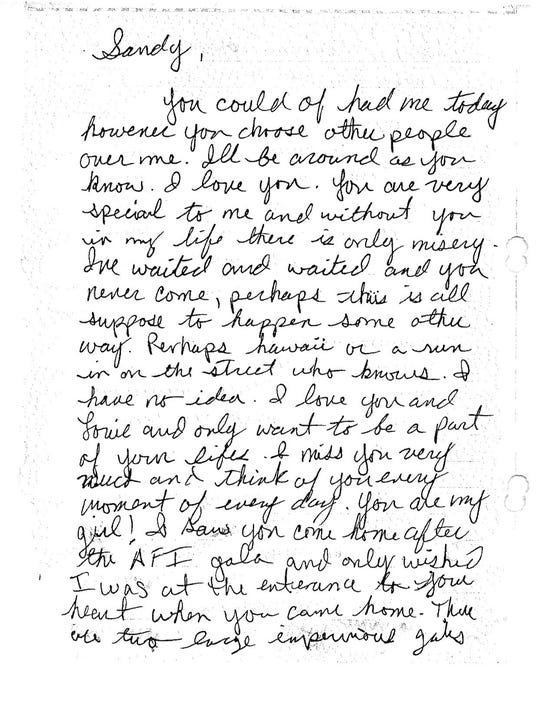 Sandy,
You could of had me today
however you choose other people
over me. Ill be around as you
know. I love you. You are very
special to me and without you
in my life there is only misery.
Ive waited and waited and you
never come, perhaps this is all
suppose to happen some other
way. Perhaps hawaii or a run
in on the street who knows. I
have no idea. I love you and
Louie and only want to be a part
of your lifes. I miss you very
much and think of you every
moment of every day. You are my
girl! I saw you come home after
the AFI gala and only wished
I was at the enterance to your
heart when you came home. There
are two large impervious gates